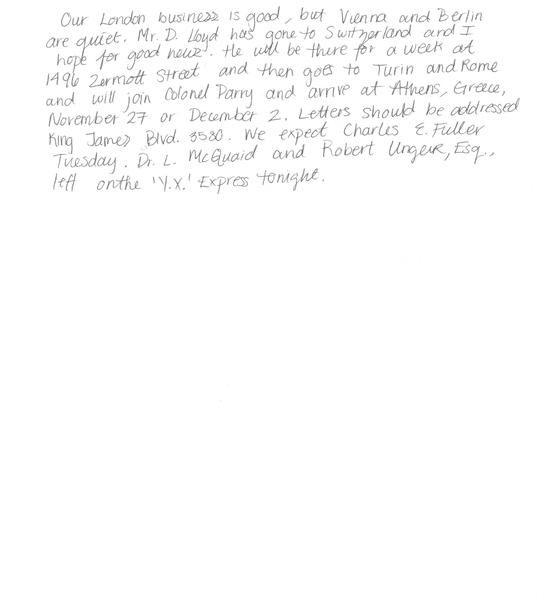 Our London business is good, but Vienna and Berlin
are quiet. Mr. D. Lloyd has gone to Switzerland and I
hope for good news. He will be there for a week at
1496 Zermott Street and then goes to Turin and Rome
and will join Colonel Parry and arrive at Athens, Greece,
November 27 or December 2. Letters should be addressed
King James Blvd. 3580. We expect Charles E. Fuller
Tuesday. Dr. L. McQuaid and Robert Unger, Esq.,
left on the 'Y.X.' Express tonight.